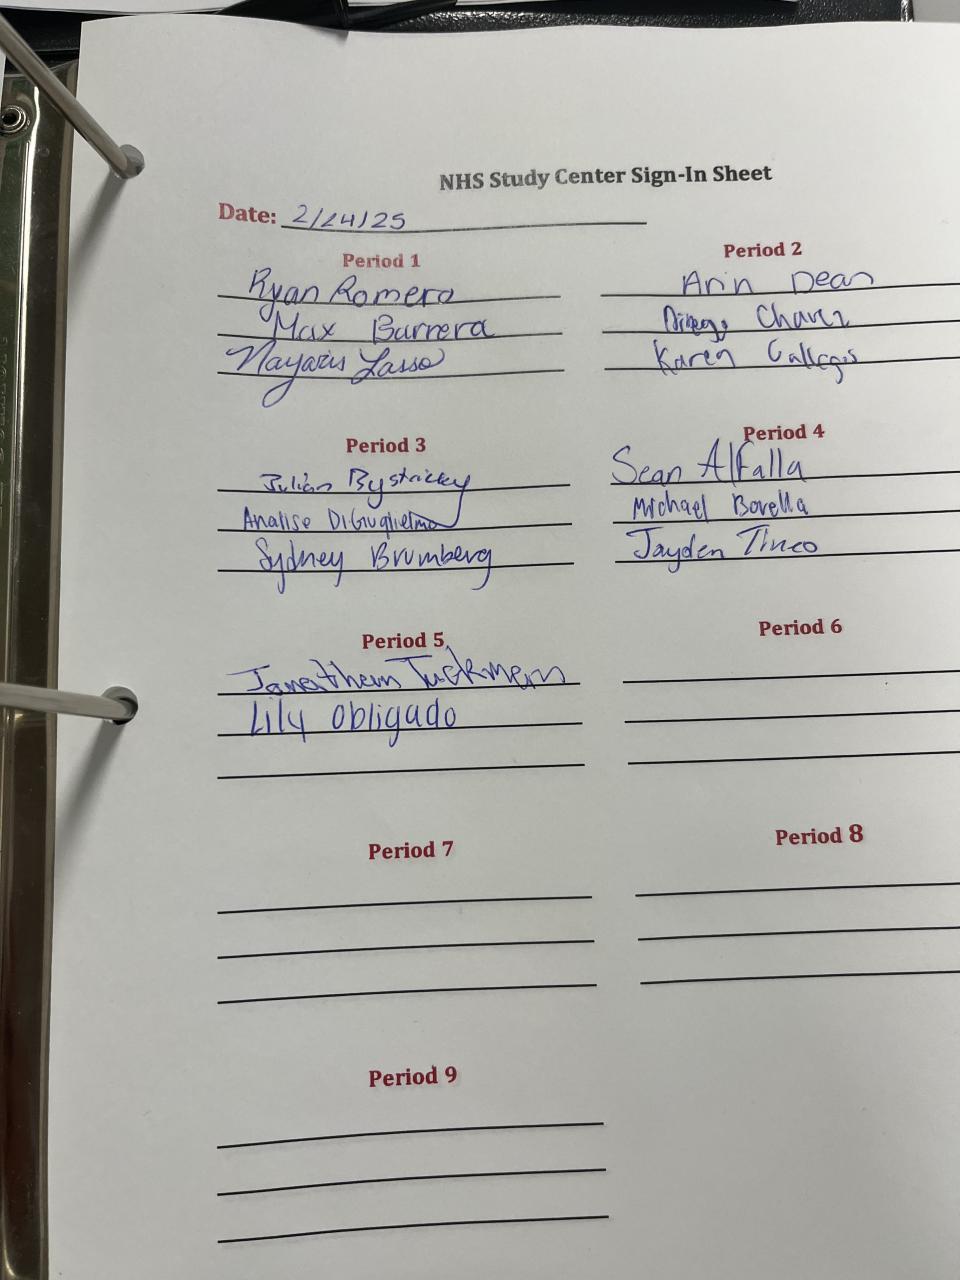 NHS Study Center Sign-In Sheet
Date: 2/24/25
Period 1
Ryan Romero
Max Barrera
Nayaris Lasso
Period 2
Arin Dean
Diego Chavez
Karen Gallegos
Period 3
Julian Bystricky
Analise DiGuglielmo
Sydney Brumberg
Period 4
Sean Alfalla
Michael Borella
Jayden Tineo
Period 5
Jonathan Tuckman
Lily Obligado
Period 6
Period 7
Period 8
Period 9